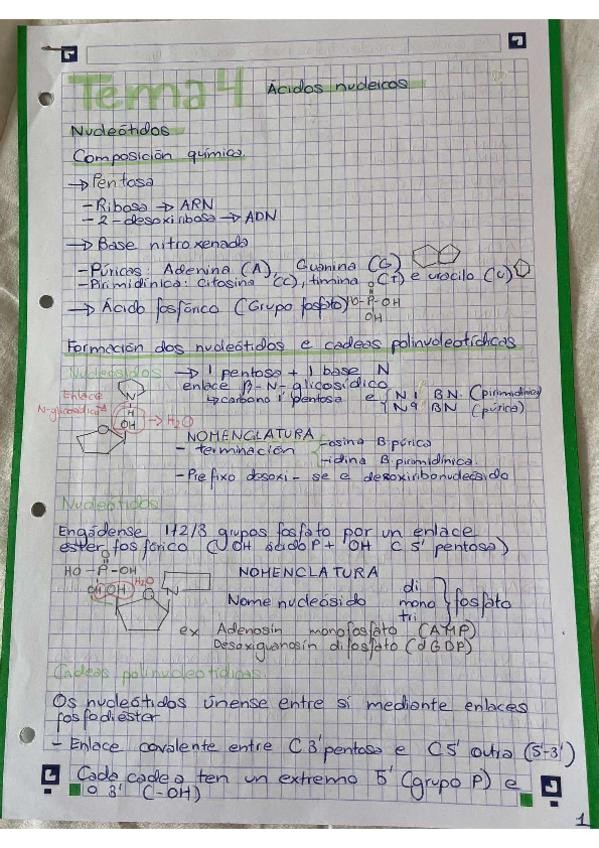 Tema 4 Ácidos nucleicos
Nucleótidos
Composición química
→ Pentosa
- Ribosa → ARN
- 2-desoxiribosa → ADN
→ Base nitroxenada
- Púricas: Adenina (A), Guanina (G)
- Pirimidínica: citosina (C), timina (T) e uracilo (U)
→ Ácido fosfórico (Grupo fosfato) HO-P-OH
O
OH
Formación dos nucleótidos e cadeas polinucleotídicas
Nucleósidos → 1 pentosa + 1 base N
enlace β-N-glicosídico
↳ carbono 1' pentosa e { N 1 BN (pirimidínica)
{ N 9 BN (púrica)
Enlace
N-glicosídico
N
H
OH → H₂O
O
NOMENCLATURA
- terminación { -osina B púrica
-idina B piramidínica
- Prefixo desoxi- se e desoxiribonucleósido
Nucleótidos
Engádense 1/2/3 grupos fosfato por un enlace
éster fosfórico (OH ácido P + OH C 5' pentosa)
O
HO-P-OH
OH OH H₂O
O N
NOMENCLATURA
Nome nucleósido di
mono } fosfato
tri
ex Adenosín monofosfato (AMP)
Desoxiguanosín difosfato (dGDP)
Cadeas polinucleotídicas
Os nucleótidos únense entre sí mediante enlaces
fosfodiéster
- Enlace covalente entre C 3' pentosa e C 5' outra (5'-3')
Cada cadea ten un extremo 5' (grupo P) e
o 3' (-OH)
1